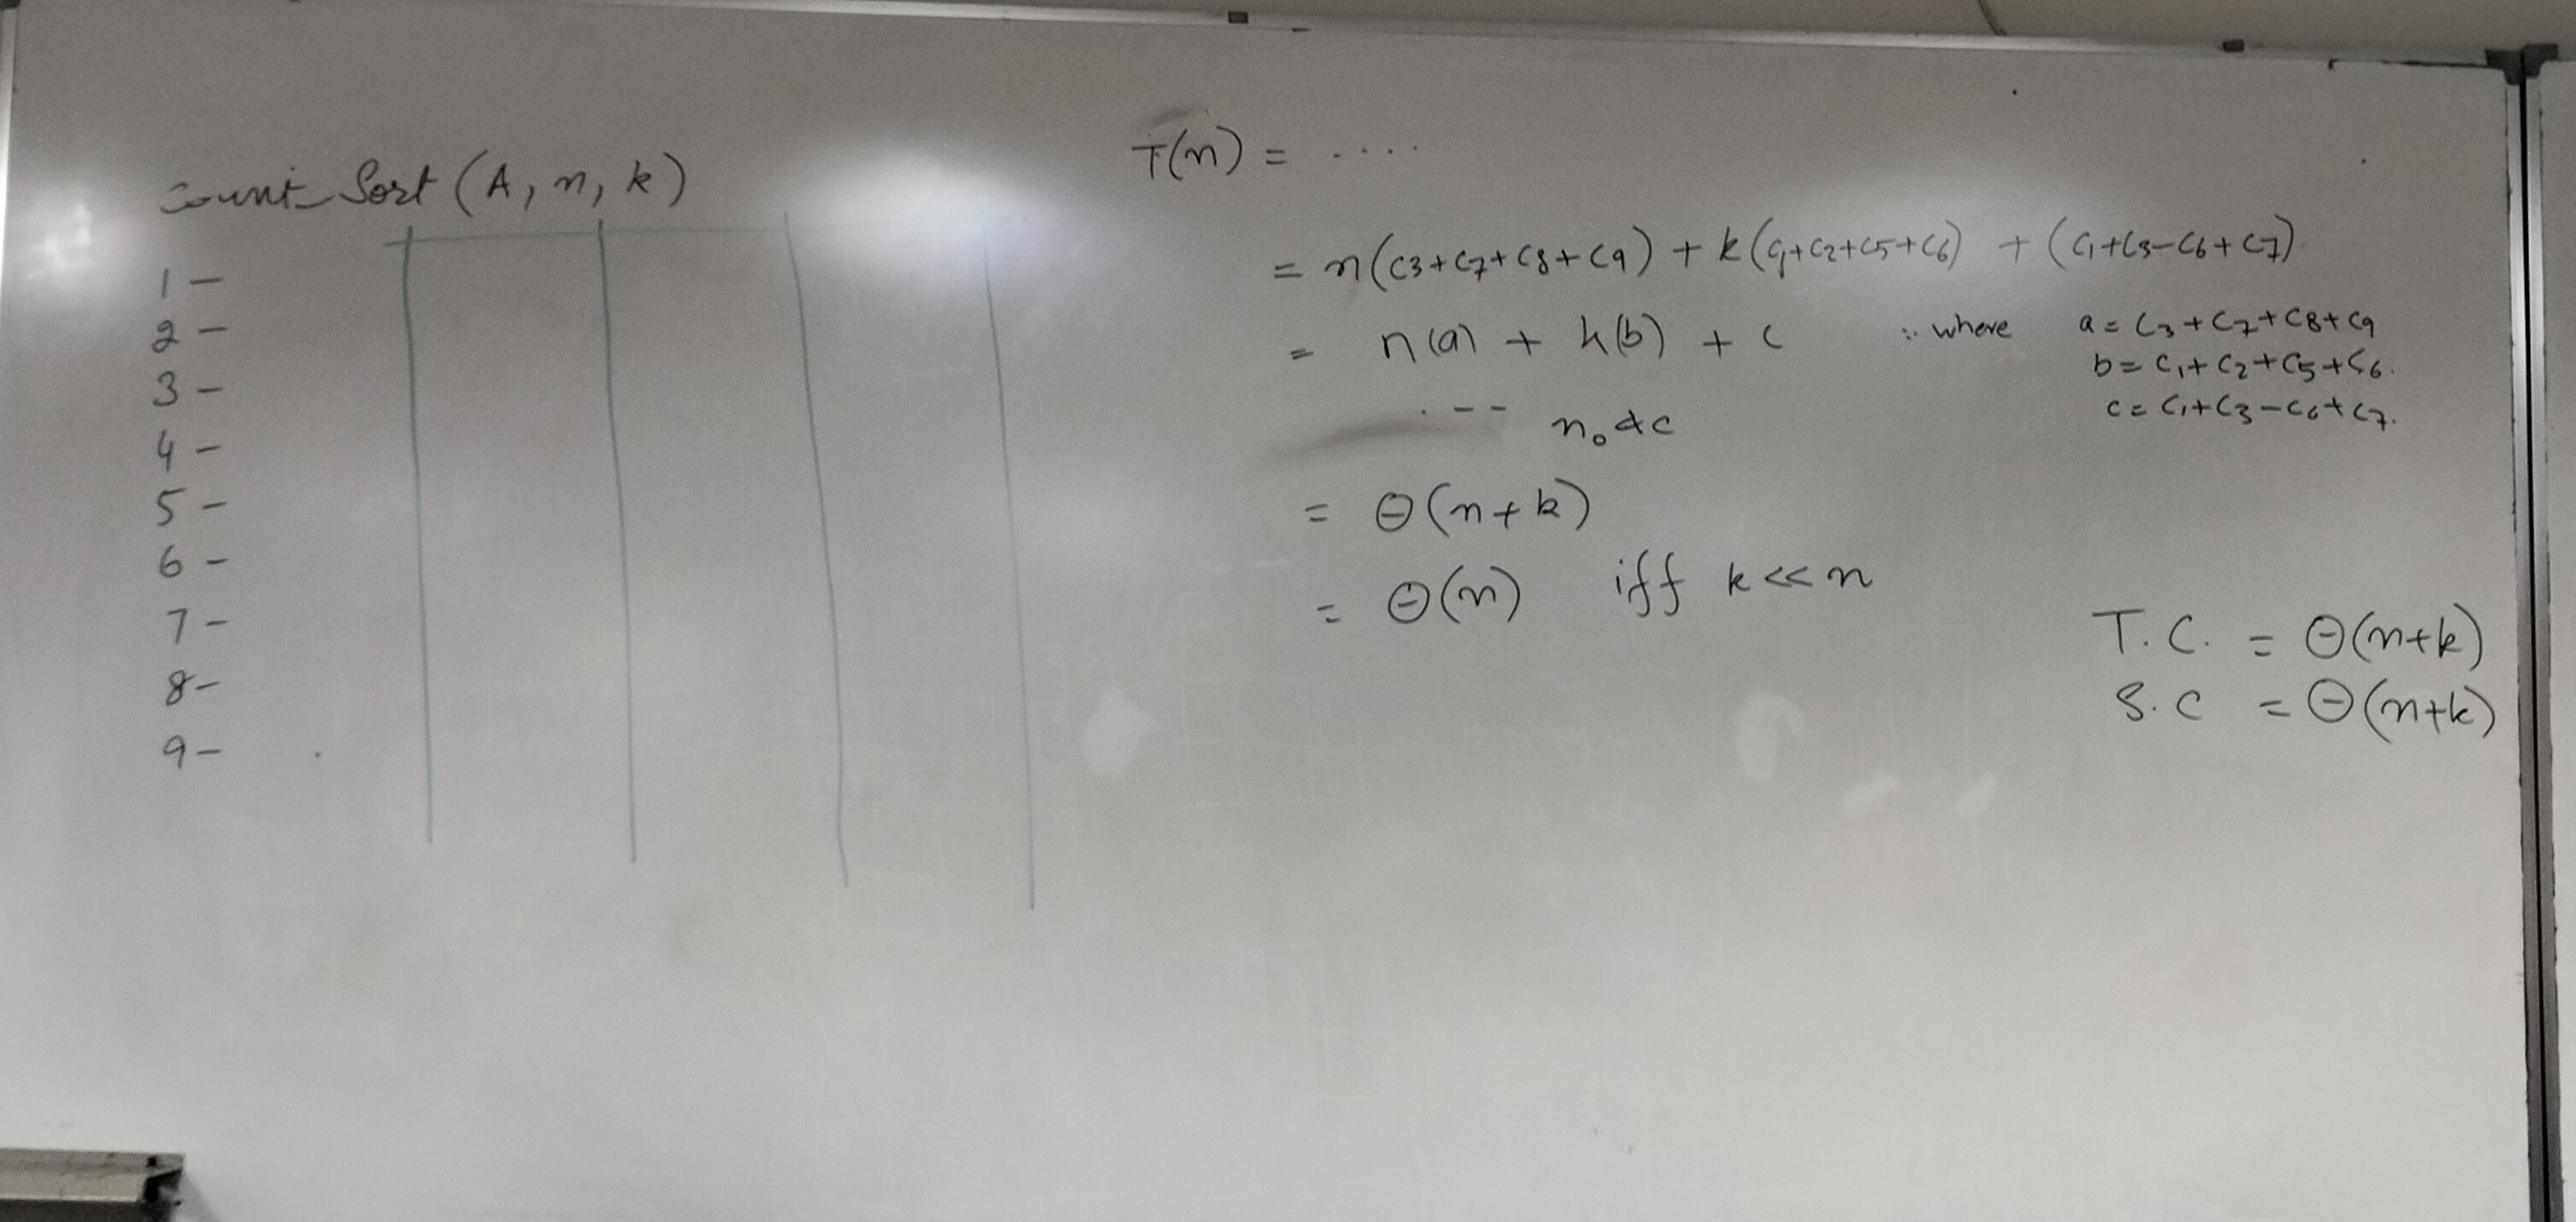 Count_Sort (A, n, k)
1 -
2 -
3 -
4 -
5 -
6 -
7 -
8 -
9 -
T(n) = ....
= n(c3+c7+c8+c9) + k(c1+c2+c5+c6) + (c1+c3-c6+c7)
= n(a) + k(b) + c ∴ where a = c3+c7+c8+c9
b = c1+c2+c5+c6.
c = c1+c3-c6+c7.
. - - n₀ & c
= Θ(n+k)
= Θ(n) iff k << n
T.C. = Θ(n+k)
S.C = Θ(n+k)